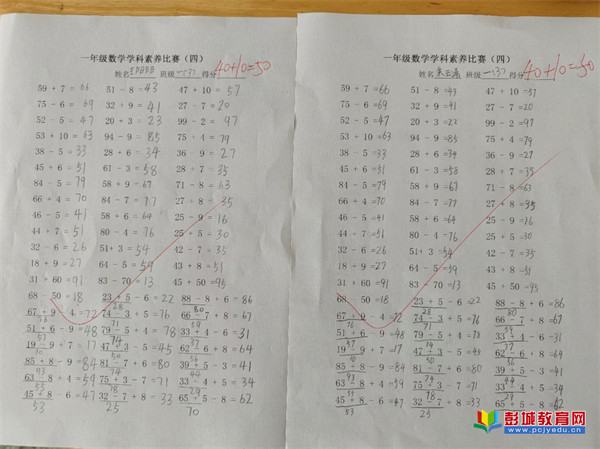 一年级数学学科素养比赛（四）
姓名 班级一（3） 得分 40+10=50
59 + 7 = 66 51 - 8 = 43 47 + 10 = 57
75 - 6 = 69 32 + 9 = 41 27 - 7 = 20
52 - 5 = 47 20 + 3 = 23 99 - 2 = 97
53 + 10 = 63 94 - 9 = 85 75 + 4 = 79
38 - 5 = 33 28 + 6 = 34 36 - 9 = 27
45 + 6 = 51 61 - 3 = 58 28 + 7 = 35
84 - 5 = 79 58 + 9 = 67 71 - 8 = 63
66 + 4 = 70 84 - 7 = 77 27 + 8 = 35
46 - 5 = 41 58 + 6 = 64 25 - 9 = 16
44 + 7 = 51 80 - 4 = 76 25 + 5 = 30
32 - 6 = 26 51 + 3 = 54 42 - 7 = 35
18 + 9 = 27 64 - 5 = 59 43 + 8 = 51
31 + 60 = 91 83 - 70 = 13 45 + 50 = 95
68 - 50 = 18 23 + 5 - 6 = 22 88 - 8 + 6 = 86
67 + 9 - 4 = 72 74 - 3 + 5 = 76 66 - 7 + 8 = 67
51 + 6 - 9 = 48 79 - 5 + 4 = 78 33 + 4 - 6 = 31
19 - 9 + 7 = 17 47 + 3 - 5 = 45 62 - 6 + 8 = 64
85 + 8 - 9 = 84 81 - 7 + 6 = 80 39 + 5 - 3 = 41
63 - 8 + 4 = 59 75 + 3 - 7 = 71 33 - 4 + 5 = 34
45 + 8 - 6 = 47 32 - 7 + 8 = 33 65 + 5 - 8 = 62
53 25 70
一年级数学学科素养比赛（四）
姓名 班级一（3） 得分 40+10=50
59 + 7 = 66 51 - 8 = 43 47 + 10 = 57
75 - 6 = 69 32 + 9 = 41 27 - 7 = 20
52 - 5 = 47 20 + 3 = 23 99 - 2 = 97
53 + 10 = 63 94 - 9 = 85 75 + 4 = 79
38 - 5 = 33 28 + 6 = 34 36 - 9 = 27
45 + 6 = 51 61 - 3 = 58 28 + 7 = 35
84 - 5 = 79 58 + 9 = 67 71 - 8 = 63
66 + 4 = 70 84 - 7 = 77 27 + 8 = 35
46 - 5 = 41 58 + 6 = 64 25 - 9 = 16
44 + 7 = 51 80 - 4 = 76 25 + 5 = 30
32 - 6 = 26 51 + 3 = 54 42 - 7 = 35
18 + 9 = 27 64 - 5 = 59 43 + 8 = 51
31 + 60 = 91 83 - 70 = 13 45 + 50 = 95
68 - 50 = 18 23 + 5 - 6 = 22 88 - 8 + 6 = 86
67 + 9 - 4 = 72 74 - 3 + 5 = 76 66 - 7 + 8 = 67
51 + 6 - 9 = 48 79 - 5 + 4 = 78 33 + 4 - 6 = 31
19 - 9 + 7 = 17 47 + 3 - 5 = 45 62 - 6 + 8 = 64
85 + 8 - 9 = 84 81 - 7 + 6 = 80 39 + 5 - 3 = 41
63 - 8 + 4 = 59 75 + 3 - 7 = 71 33 - 4 + 5 = 34
45 + 8 - 6 = 47 32 - 7 + 8 = 33 65 + 5 - 8 = 62
53 25
彭城教育网
www.pcjyedu.cn